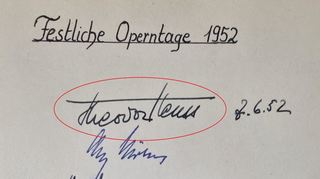 Festliche Operntage 1952
Theodor Heuss 2.6.52